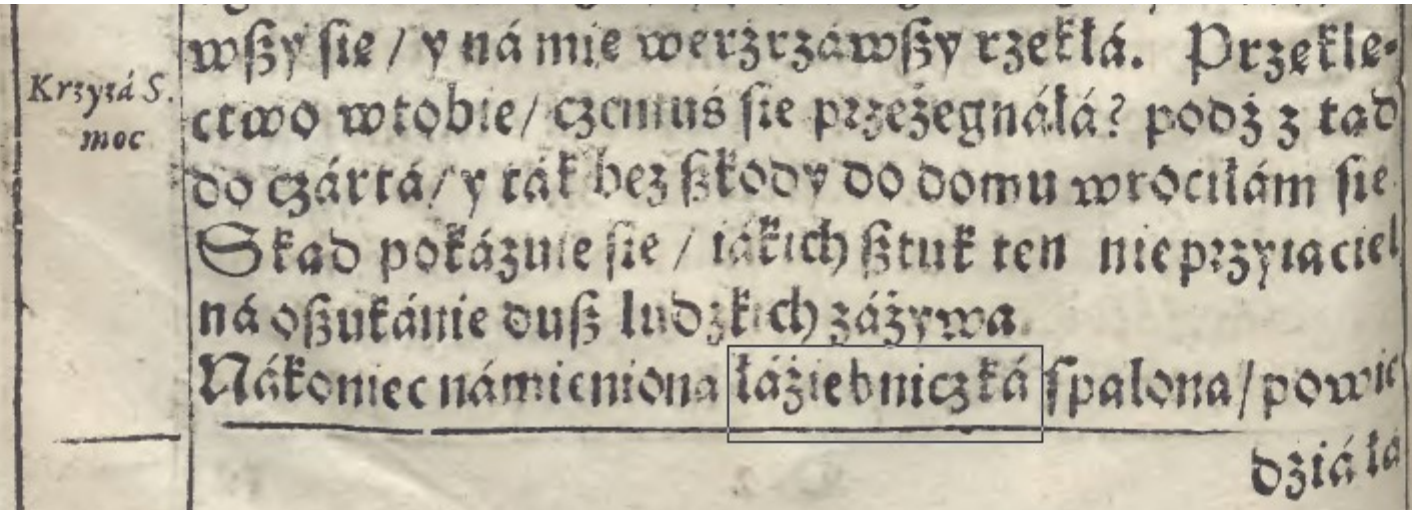 Krzyzá S.
moc
wßy ſie / y ná mię weyżrzáwßy rzekłá. Przekle-
ctwo wtobie / czemuś ſie przeżegnáłá? podź z tad
do czártá / y ták bez ßkody do domu wrociłám ſie
Skad pokázuie ſie / iákich ßtuk ten nieprzyiaciel
ná oßukánie duß ludzkich záżywa.
Nákoniec námieniona łáźiebniczká ſpalona / powie
dziáłá